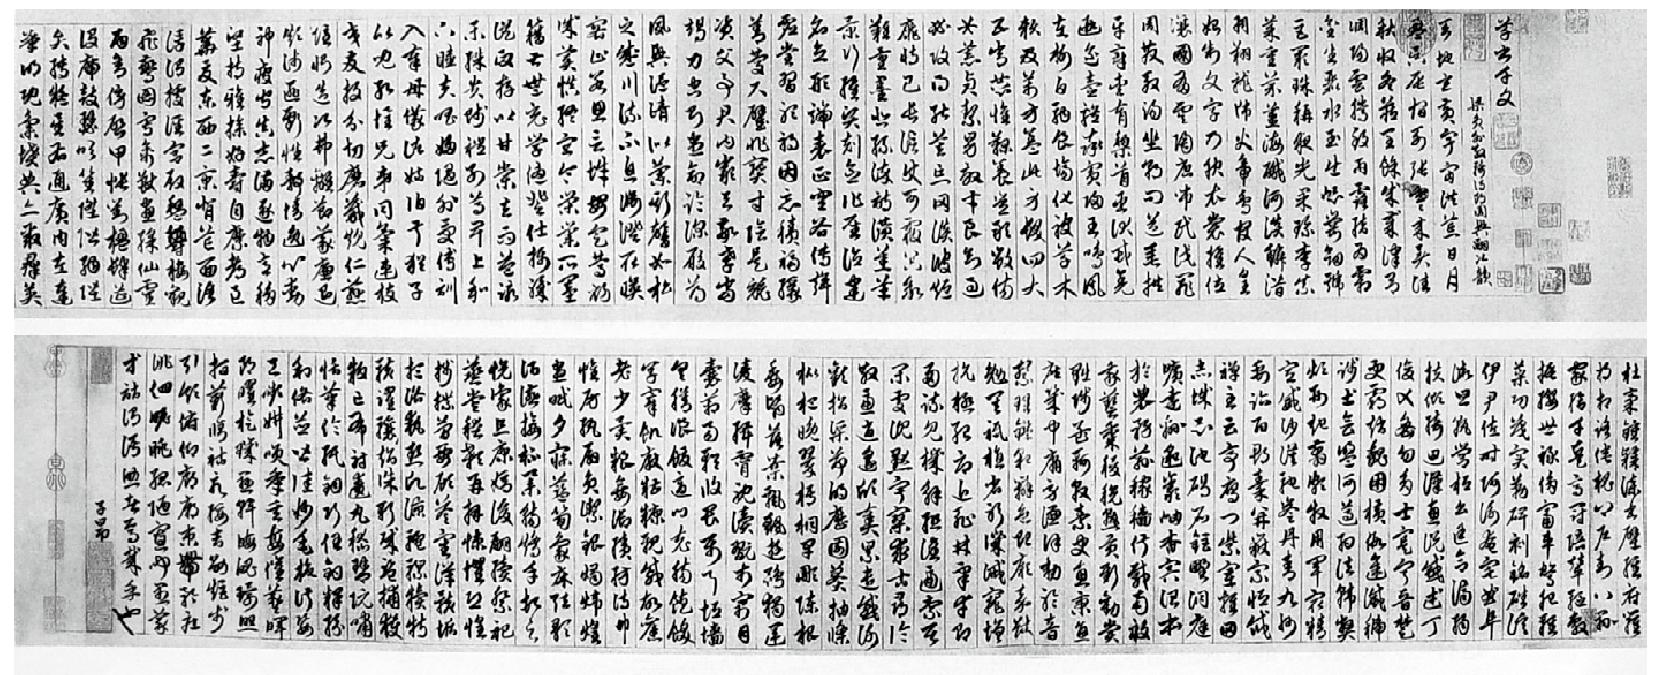 草書千文
梁員外散騎侍郎周興嗣次韻
天地玄黃宇宙洪荒日月
盈昃辰宿列張寒来暑往
秋收冬藏閏餘成歲律呂
調陽雲騰致雨露結為霜
金生麗水玉出崑岡劍號
巨闕珠稱夜光果珍李柰
菜重芥薑海鹹河淡鱗潛
羽翔龍師火帝鳥官人皇
始制文字乃服衣裳推位
讓國有虞陶唐弔民伐罪
周發殷湯坐朝問道垂拱
平章愛育黎首臣伏戎羌
遐邇壹體率賓歸王鳴鳳
在樹白駒食場化被草木
賴及萬方蓋此身髮四大
五常恭惟鞠養豈敢毀傷
女慕貞潔男效才良知過
必改得能莫忘罔談彼短
靡恃己長信使可覆器欲
難量墨悲絲染詩讚羔羊
景行維賢剋念作聖德建
名立形端表正空谷傳聲
虛堂習聽禍因惡積福緣
善慶尺璧非寶寸陰是競
資父事君曰嚴與敬孝當
竭力忠則盡命臨深履薄
夙興溫凊似蘭斯馨如松
之盛川流不息淵澄取映
容止若思言辭安定篤初
誠美慎終宜令榮業所基
籍甚無竟學優登仕攝職
從政存以甘棠去而益詠
樂殊貴賤禮別尊卑上和
下睦夫唱婦隨外受傅訓
入奉母儀諸姑伯叔猶子
比兒孔懷兄弟同氣連枝
交友投分切磨箴規仁慈
隱惻造次弗離節義廉退
顛沛匪虧性靜情逸心動
神疲守真志滿逐物意移
堅持雅操好爵自縻都邑
華夏東西二京背邙面洛
浮渭據涇宮殿盤鬱樓觀
飛驚圖寫禽獸畫彩仙靈
丙舍傍啟甲帳對楹肆筵
設席鼓瑟吹笙陞階納陛
弁轉疑星右通廣內左達
承明既集墳典亦聚群英
杜稾鍾隸漆書壁經府羅
將相路俠槐卿戶封八縣
家給千兵高冠陪輦驅轂
振纓世祿侈富車駕肥輕
策功茂實勒碑刻銘磻溪
伊尹佐時阿衡奄宅曲阜
微旦孰營桓公匡合濟弱
扶傾綺迴漢惠說感武丁
俊乂密勿多士寔寧晉楚
更霸趙魏困橫假途滅虢
踐土會盟何遵約法韓弊
煩刑起翦頗牧用軍最精
宣威沙漠馳譽丹青九州
禹跡百郡秦并嶽宗恒岱
禪主云亭雁門紫塞雞田
赤城昆池碣石鉅野洞庭
曠遠緜邈巖岫杳冥治本
於農務茲稼穡俶載南畝
我藝黍稷稅熟貢新勸賞
黜陟孟軻敦素史魚秉直
庶幾中庸勞謙謹勑聆音
察理鑑貌辨色貽厥嘉猷
勉其祗植省躬譏誡寵增
抗極殆辱近恥林皋幸即
兩疏見機解組誰逼索居
閑處沉默寂寥求古尋論
散慮逍遙欣奏累遣慼謝
歡招渠荷的歷園莽抽條
枇杷晚翠梧桐早凋陳根
委翳落葉飄颻遊鵾獨運
凌摩絳霄耽讀翫市寓目
囊箱易輶攸畏屬耳垣墻
具膳飡飯適口充腸飽飫
烹宰飢厭糟糠親戚故舊
老少異糧妾御績紡侍巾
帷房紈扇圓潔銀燭煒煌
晝眠夕寐藍筍象床弦歌
酒讌接杯舉觴矯手頓足
悅豫且康嫡後嗣續祭祀
蒸嘗稽顙再拜悚懼恐惶
牋牒簡要顧答審詳骸垢
想浴執熱願涼驢騾犢特
駭躍超驤誅斬賊盜捕獲
叛亡布射遼丸嵇琴阮嘯
恬筆倫紙鈞巧任釣釋紛
利俗並皆佳妙毛施淑姿
工顰妍笑年矢每催曦暉
朗曜璇璣懸斡晦魄環照
指薪修祜永綏吉劭矩步
引領俯仰廊廟束帶矜莊
徘徊瞻眺孤陋寡聞愚蒙
等誚謂語助者焉哉乎也
子昂